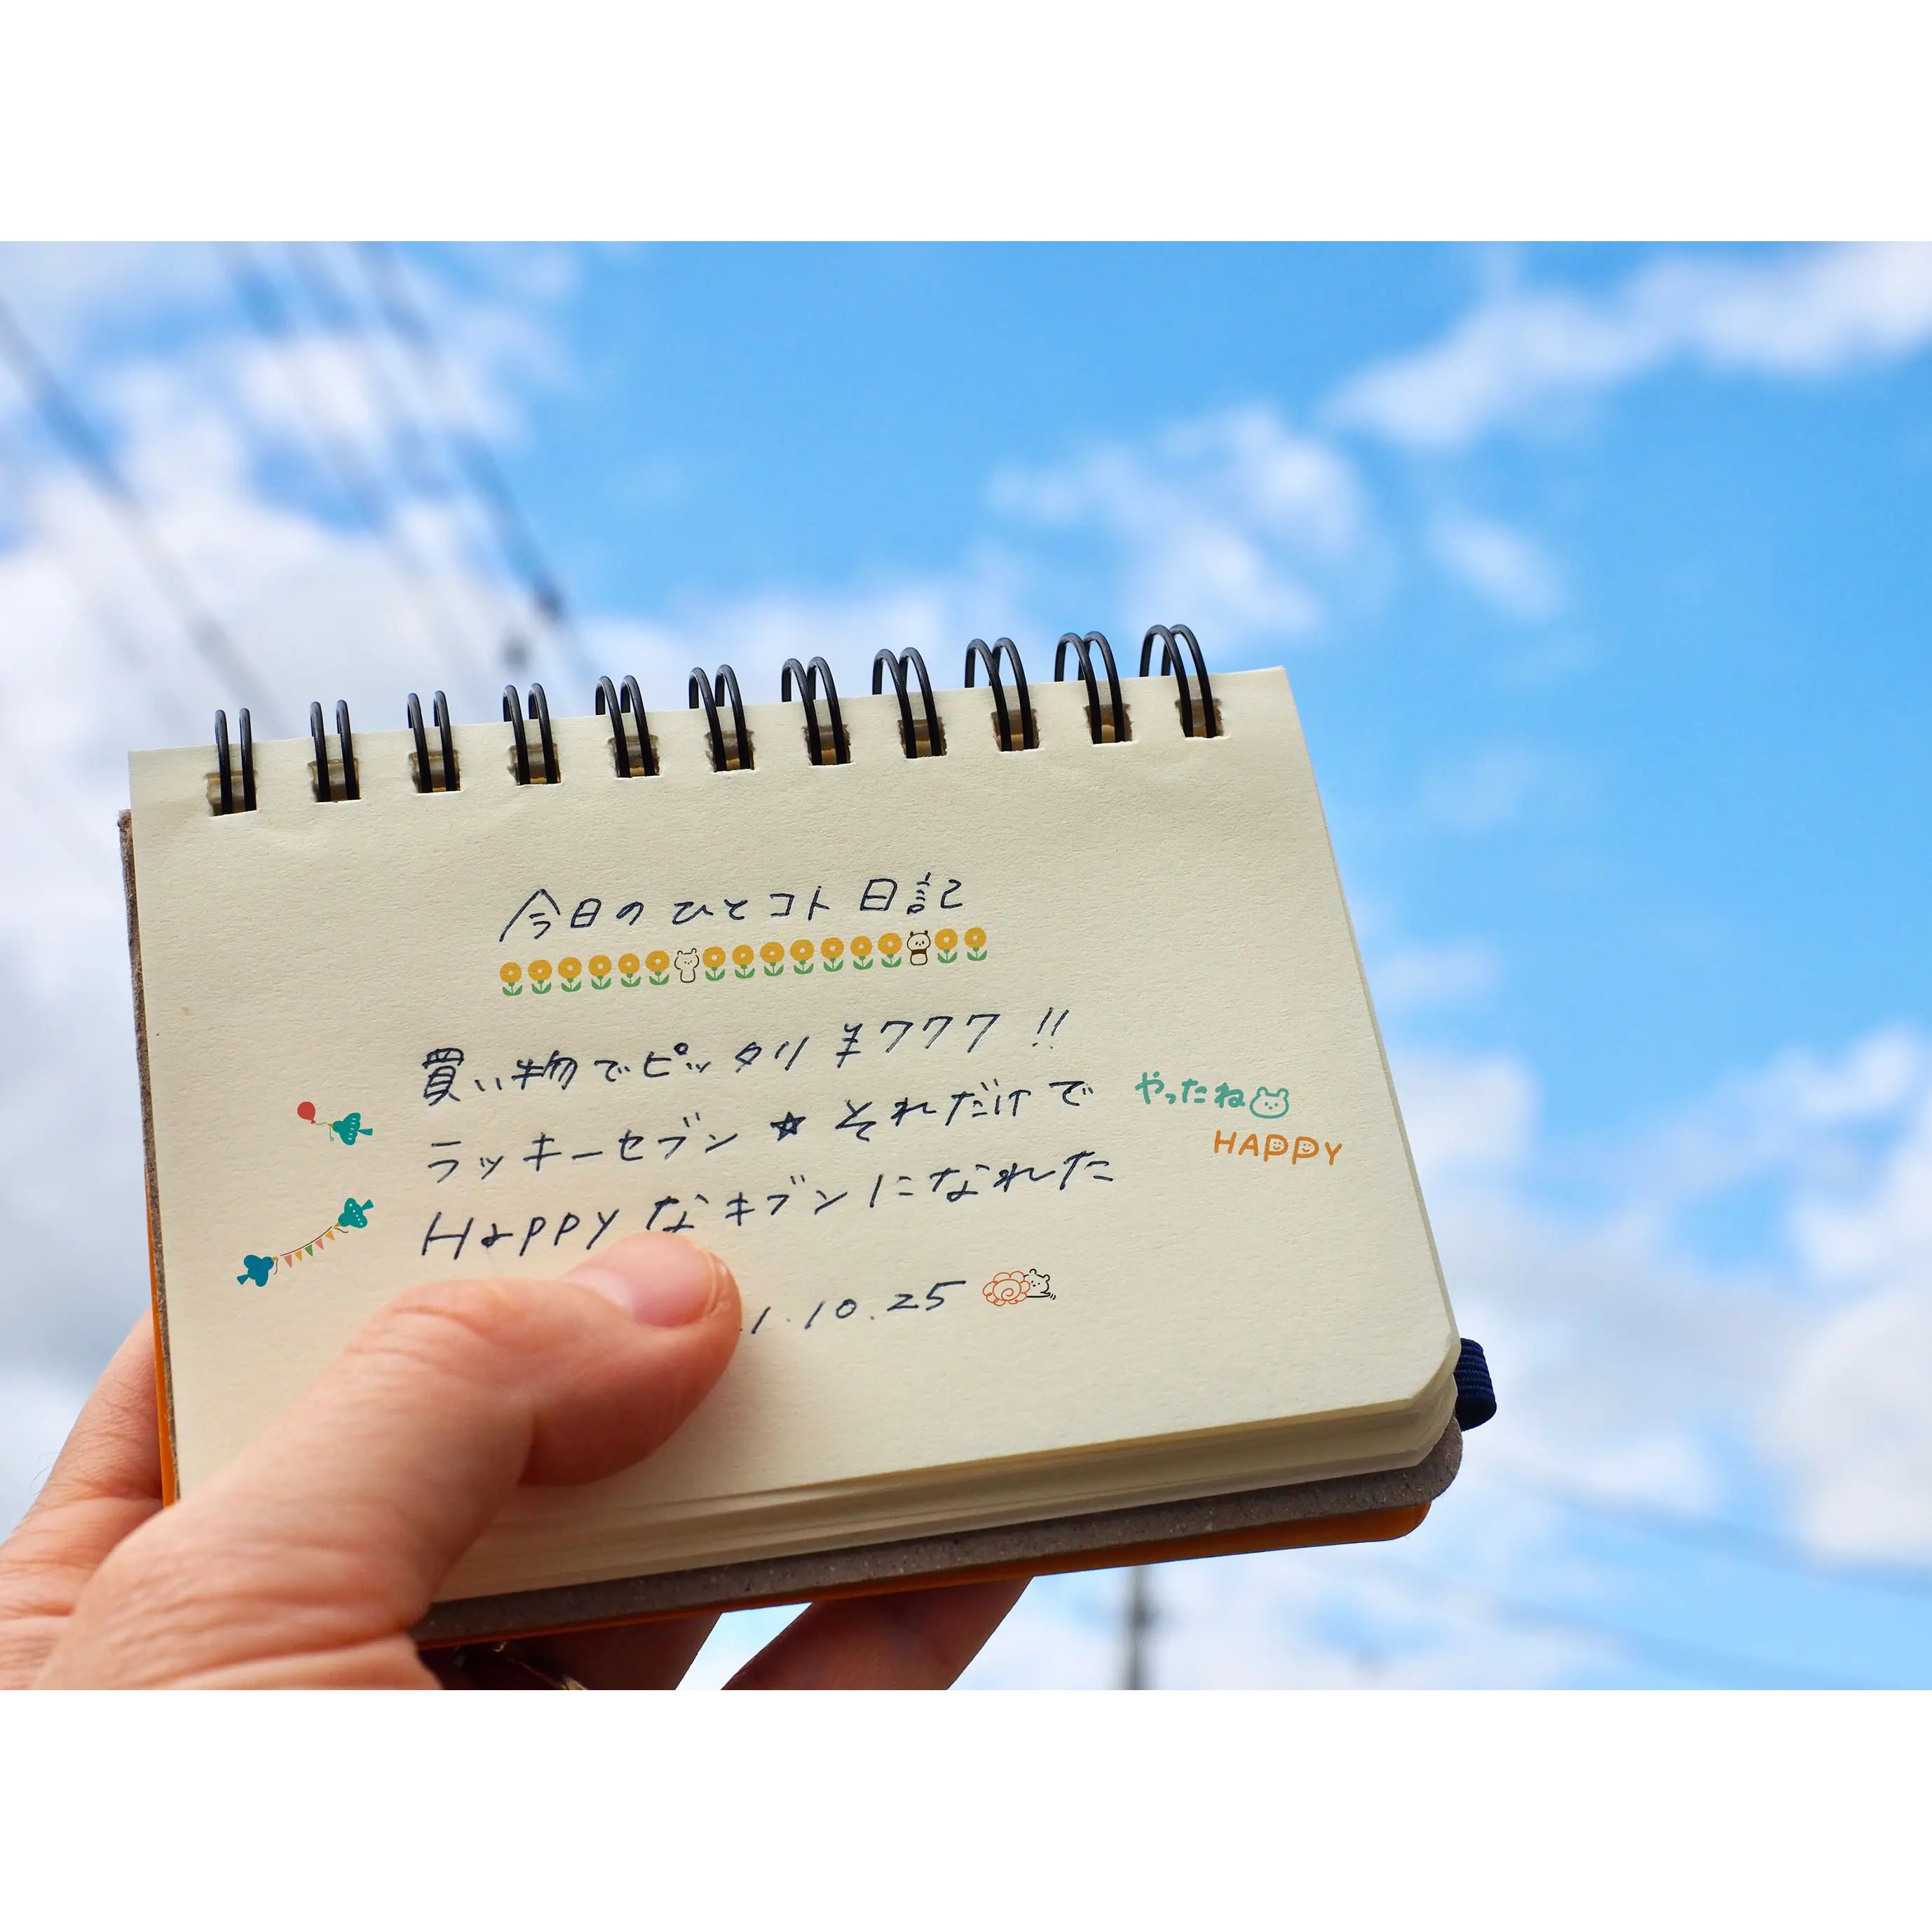 今日のひとコト日記
買い物でピッタリ ¥777 !!
ラッキーセブン ★ それだけで
Happy なキブンになれた
やったね
HAPPY
1.10.25